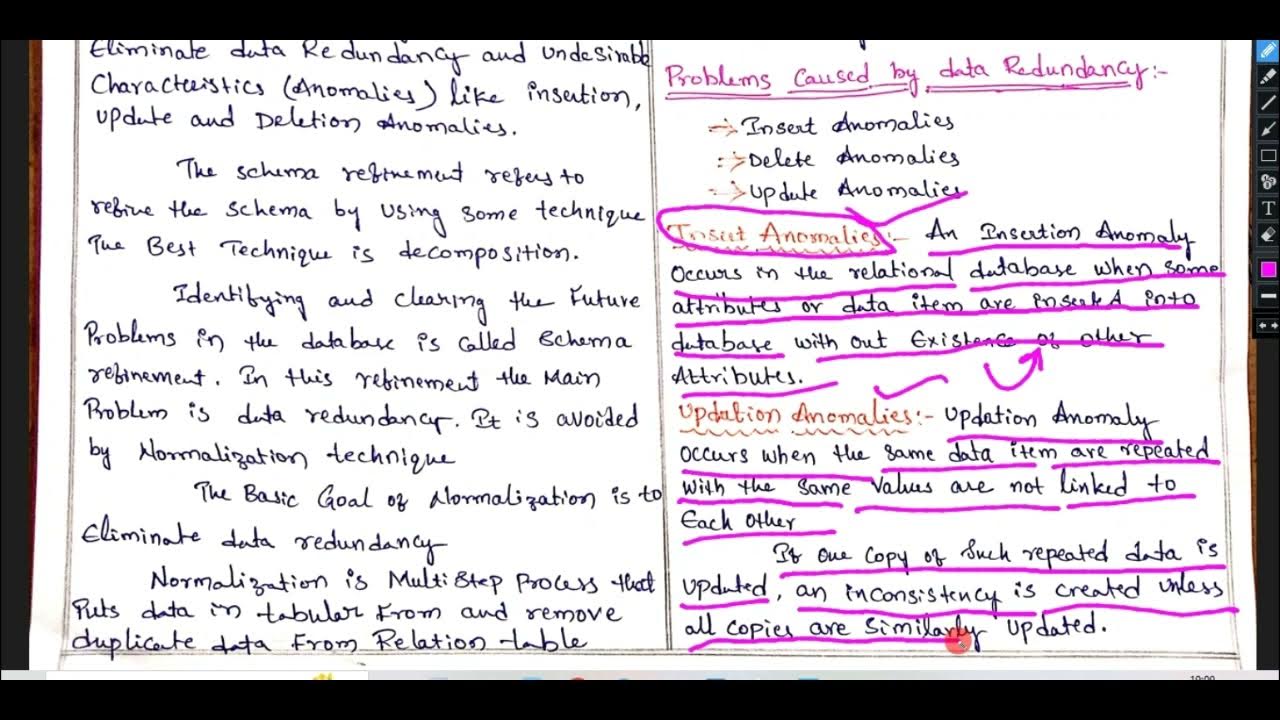 Eliminate data Redundancy and undesirable
Characteristics (Anomalies) like insertion,
update and Deletion Anomalies.
The schema refinement refers to
refine the schema by using some technique
The Best Technique is decomposition.
Identifying and clearing the Future
Problems in the database is called Schema
refinement. In this refinement the Main
Problem is data redundancy. It is avoided
by Normalization technique
The Basic Goal of Normalization is to
Eliminate data redundancy
Normalization is Multi Step Process that
Puts data in tabular From and remove
duplicate data From Relation table
Problems Caused by data Redundancy:-
→ Insert Anomalies
:→ Delete Anomalies
:→ Update Anomalies
Insert Anomalies:- An Insertion Anomaly
occurs in the relational database when some
attributes or data item are inserted into
database with out Existence of other
Attributes.
Updation Anomalies:- Updation Anomaly
occurs when the same data item are repeated
with the same values are not linked to
Each other
If one copy of such repeated data is
updated, an inconsistency is created unless
all copies are similarly updated.
T